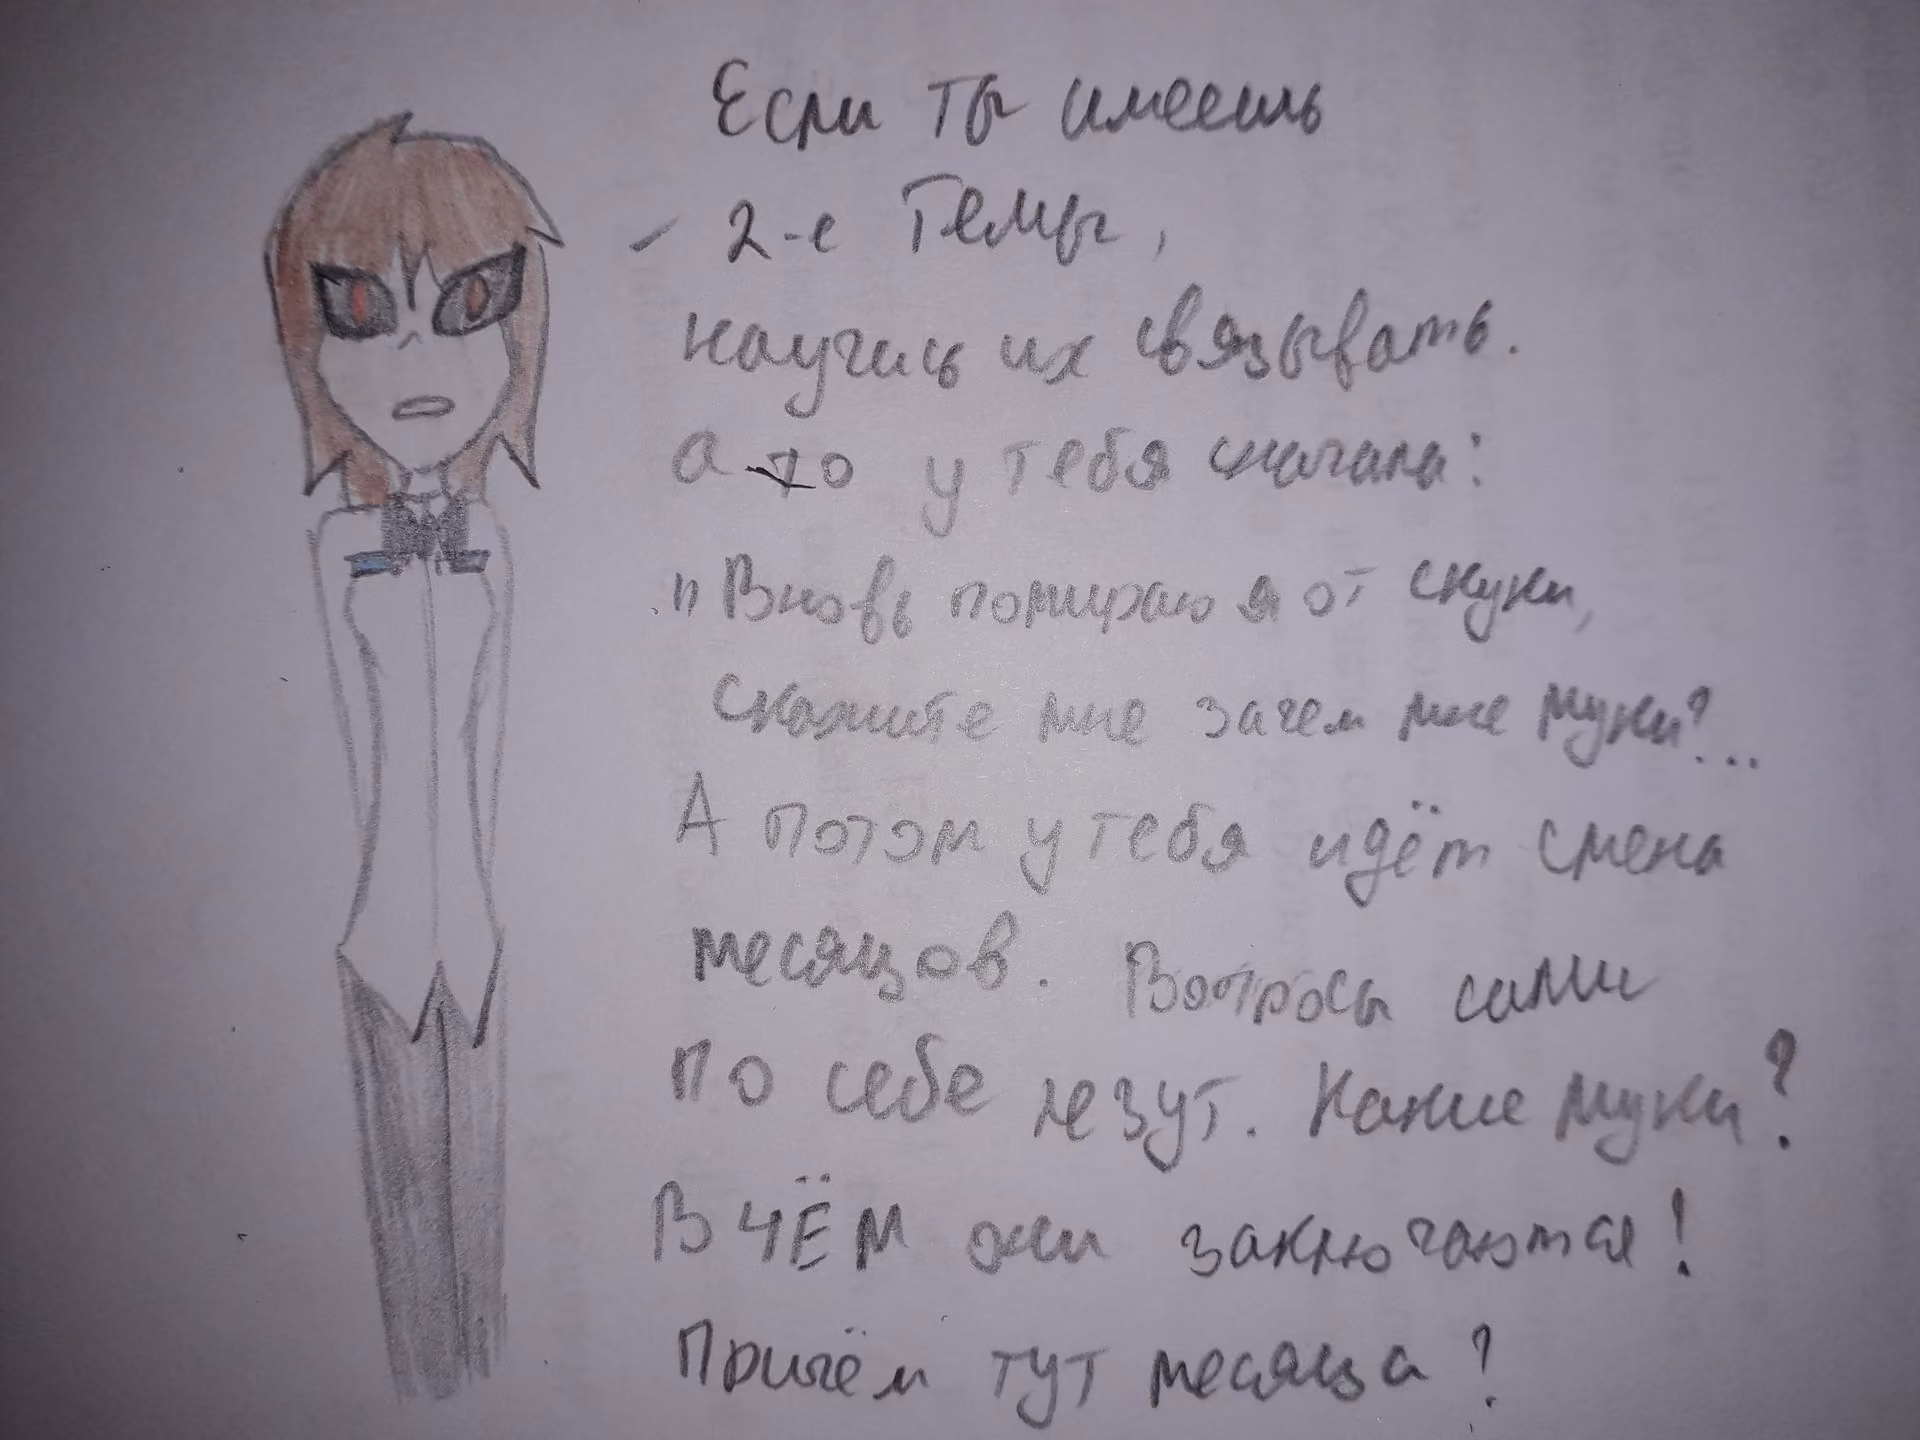 Если ты имеешь
- 2-е темы,
научись их связывать.
а то у тебя сначала:
"Вновь помираю я от скуки,
скажите мне зачем мне муки?...
А потом у тебя идёт смена
месяцов. Вопросы сами
по себе лезут. Какие муки?
В чём они заключаются!
Причём тут месяца?